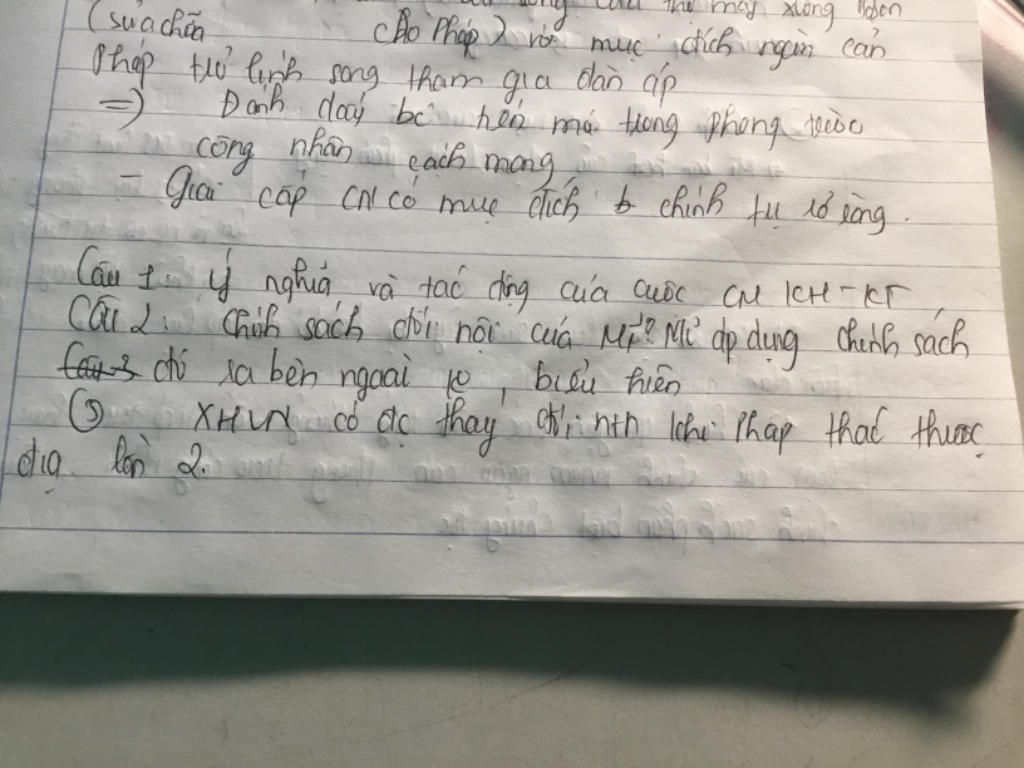 sông cầu thợ máy xưởng
(sửa chữa cho Pháp) với mục đích ngăn cản
Pháp trở lính sang tham gia đàn áp
=) Đánh dấu bc tiến mới trong phong trào
công nhân cách mạng
- Giai cấp CN có mục đích chính trị rõ ràng.
Câu 1: Ý nghĩa và tác động của cuộc CM KH-KT
Câu 2: Chính sách đối nội của Mĩ? Mĩ áp dụng chính sách
đó ra bên ngoài ko, biểu hiện
(3) XHVN có đc thay đổi ntn khi Pháp thác thuộc
địa lần 2.